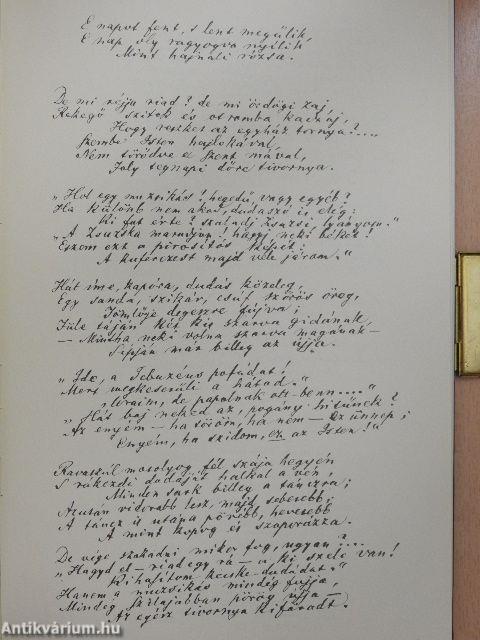 E napot fent, s lent megülik,
E nap oly ragyogva nyílik
Mint hajnali rózsa.
De mi réjja riad? de mi ördögi zaj,
Rekegő szitok és otromba kaczaj,
Hogy reszket az egyház tornya?....
Szembe Isten hajlokával,
Nem törődve a Szent mával,
Foly tegnapi dőre tivornya.
"Hol egy muzsikás! hegedű, vagy egyéb?
Ha különb nem akad, dudaszó is elég:
Ki fut érte? szaladj Zsuzsi lyányom."
"A Zsuzska maradjon! hagyj neki békét!
Eszem ezt a pirosítós képét:
A kuferczest majd véle járom."
Hát íme, kapóra, dudás közeleg,
Egy sanda, szikár, csúf szőrös öreg,
Tömlője degeszre fújva;
Füle táján két kis szarva gidának,
– Mintha neki volna szarva magának –
Sípján már billeg az ujja.
"Ide, a Jebuzéus pofádat!
Mert megkeserüli a hátad."
"Uraim, de papolnak ott benn....."
"Hász baj neked az, pogány hitünek?
Az enyém – ha töröm, ha nem – az ünnep;
Enyém, ha szidom, ez az Isten!"
Ravaszúl mosolyog fél szája hegyén
S rákezdi dudáját halkal a vén,
Minden sark billeg a tánczra;
Azután vidorabb lesz, majd sebesebb;
A táncz is utána pörébb, hevesebb
A mint kopog és szaporázza.
De vége szakadni mikor fog, ugyan?...
"Hagyd el – riad egy rá – a ki szele van!
Kihasítom kecske-dudádat."
Hanem a muzsikás mindég fujja,
Mindég szilajabban pörög ujja –
Az egész tivornya kifáradt.
Antikvárium.hu